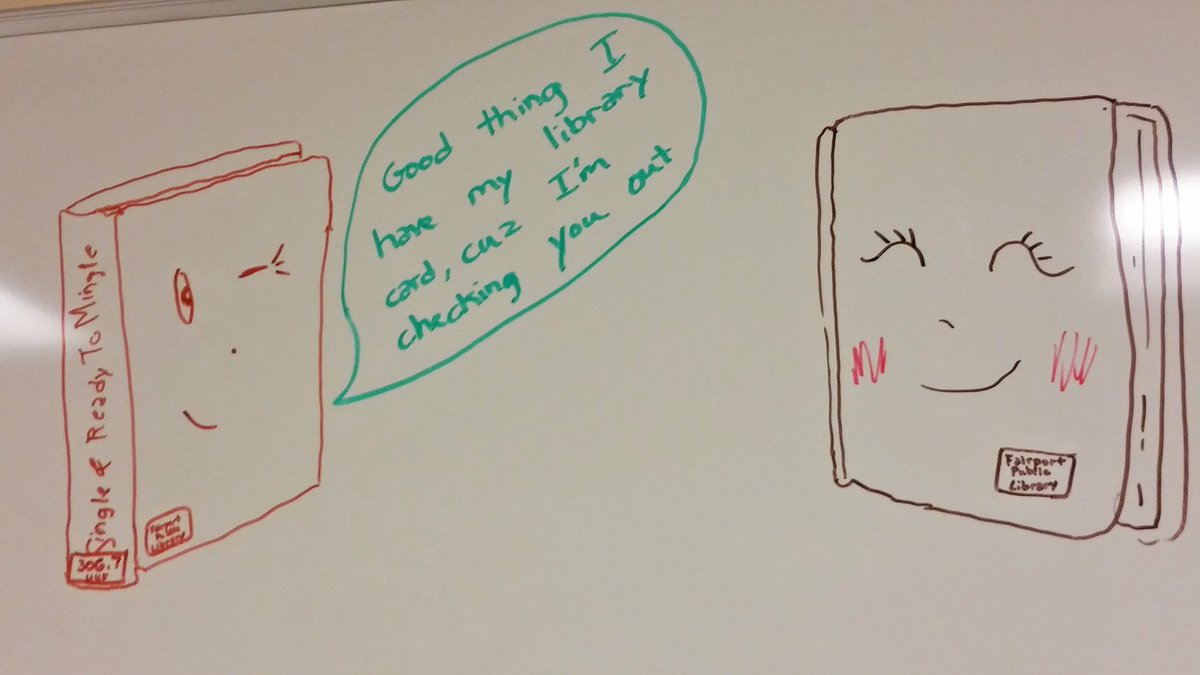 Good thing I
have my library
card, cuz I'm
checking you out
Single & Ready To Mingle
306.7
Fairport
Public
Library
Fairport
Public
Library